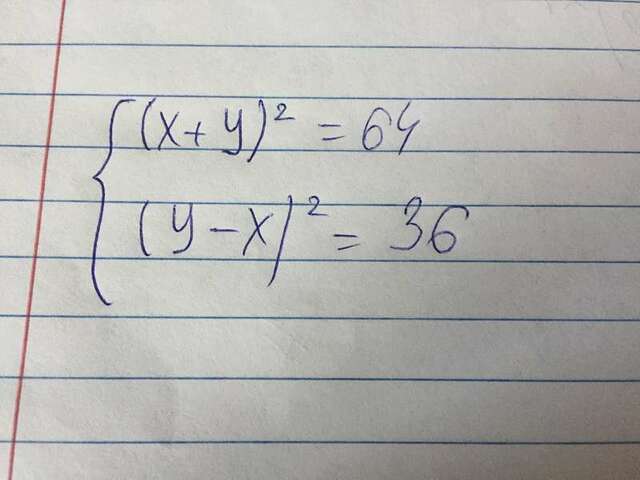 (x+y)² = 64
(y-x)² = 36